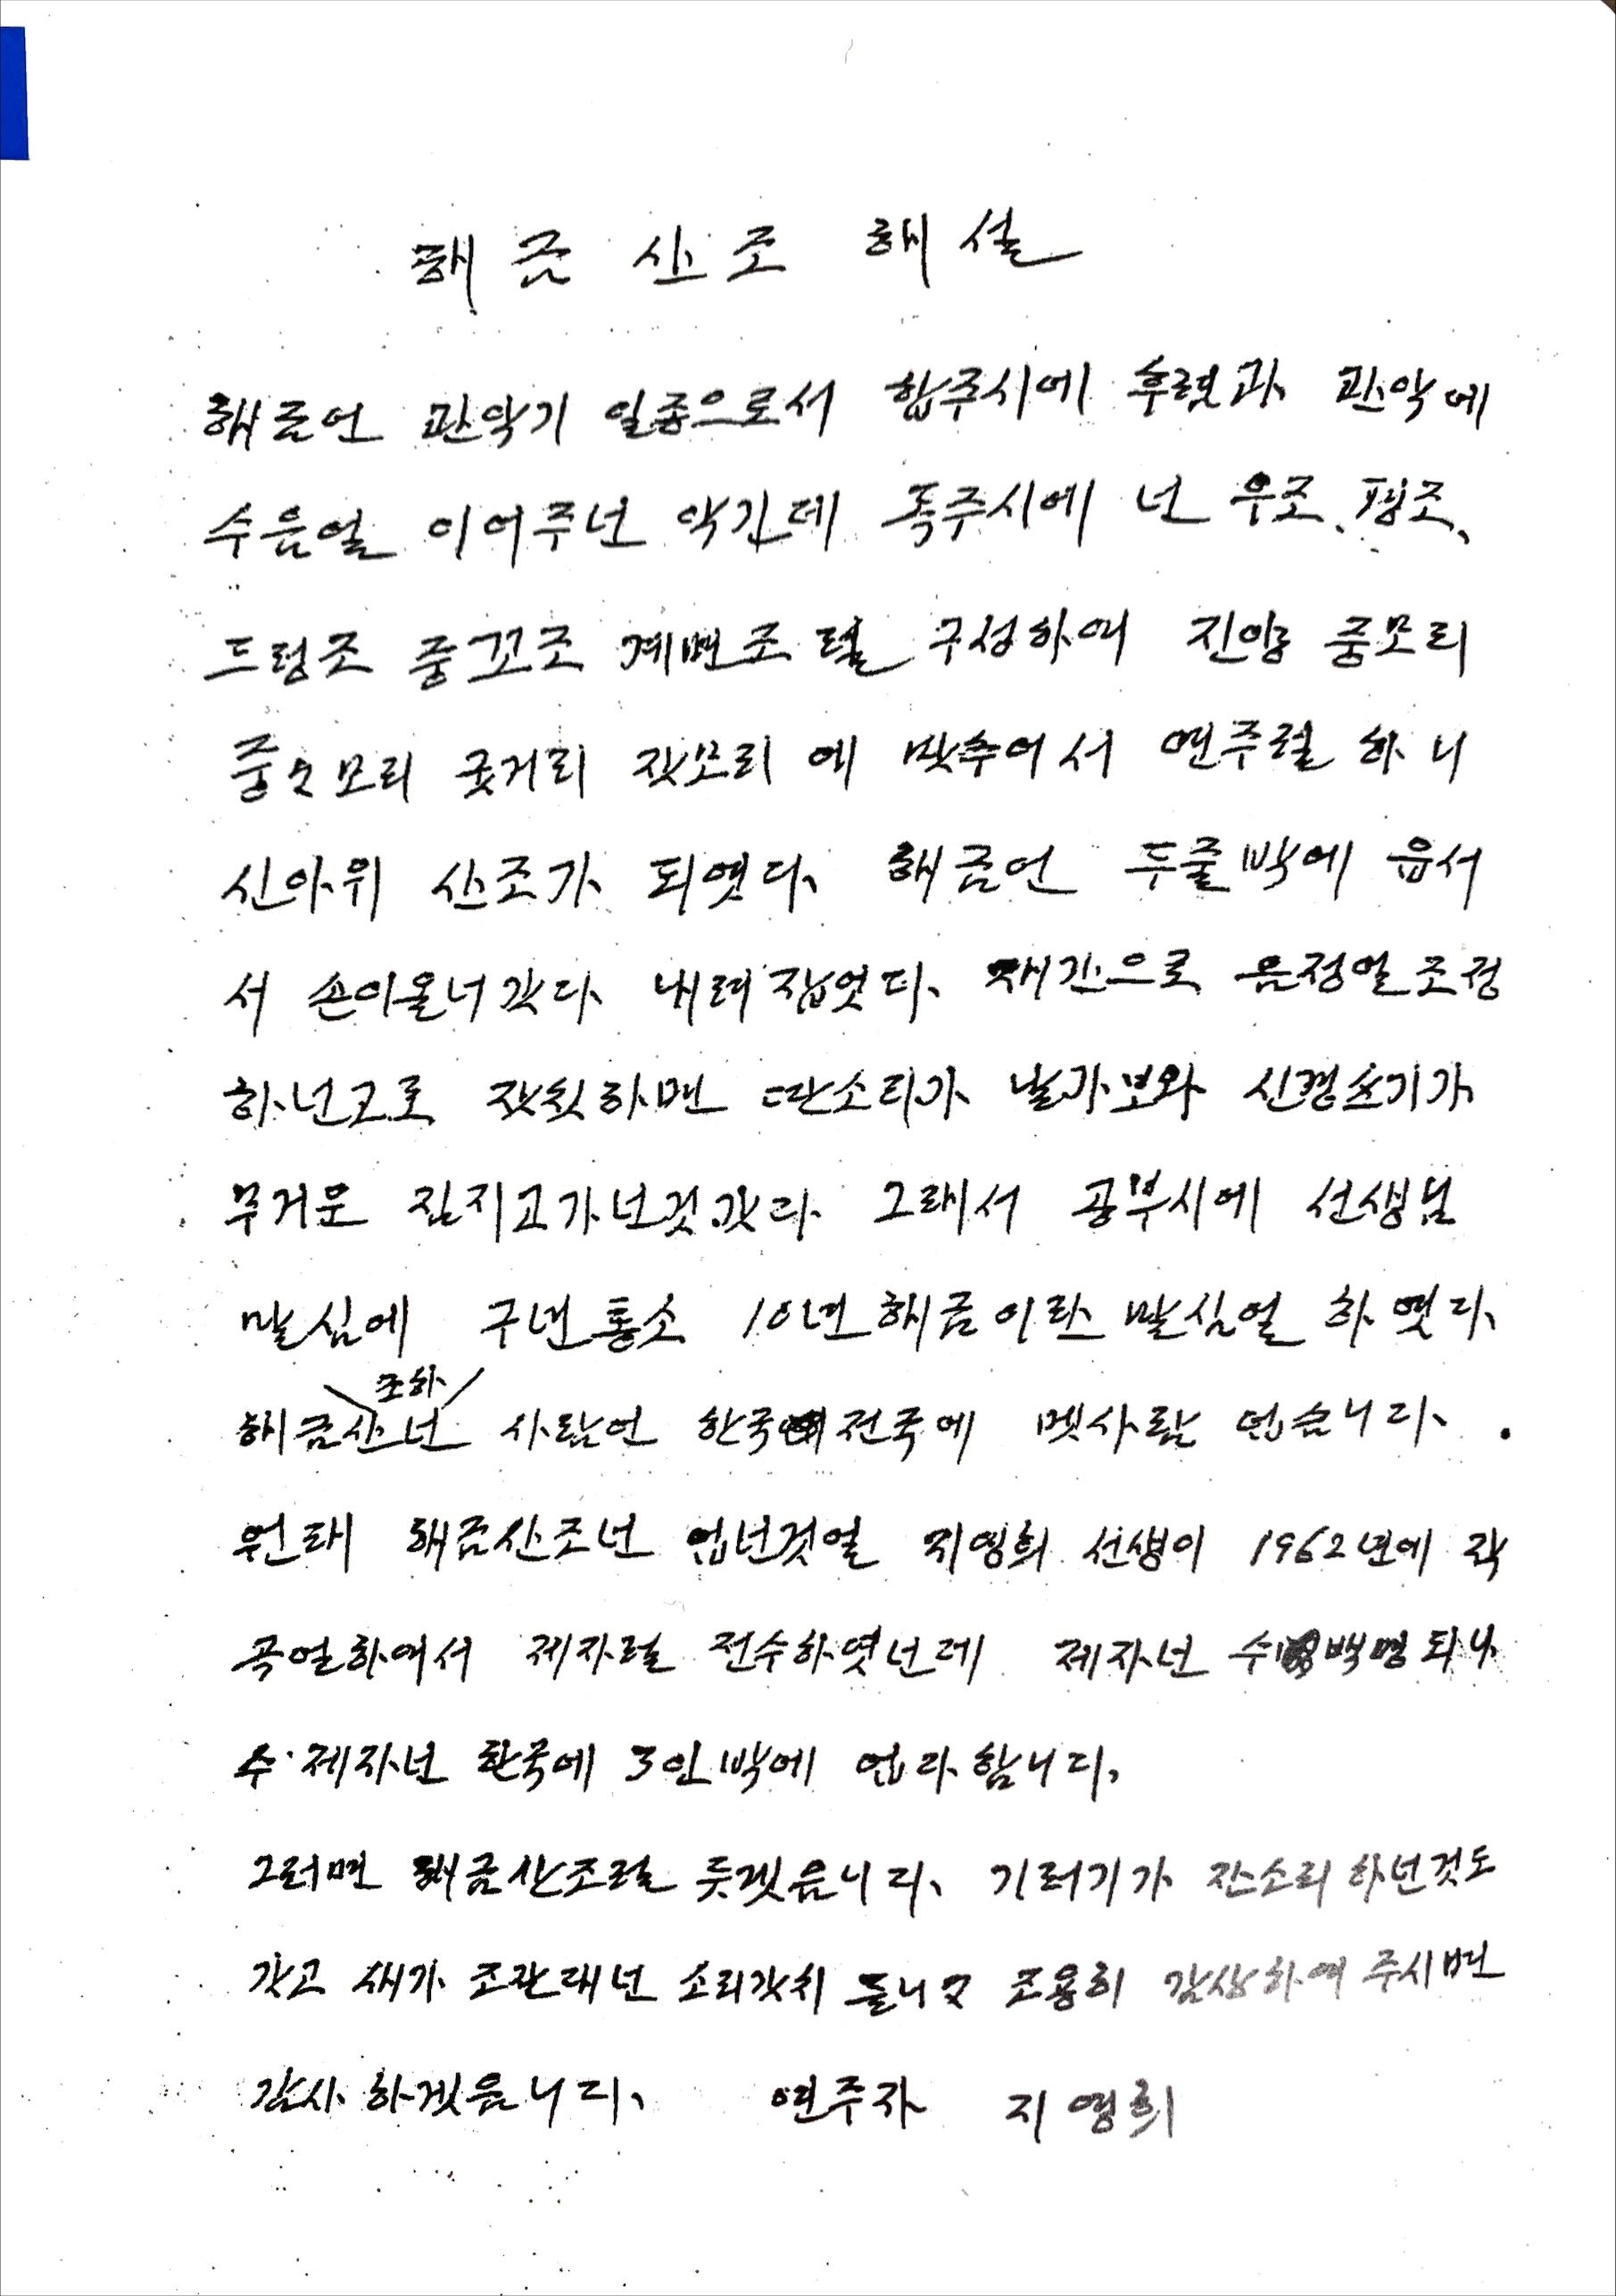 해금산조 해설
해금언 관악기 일종으로서 합주시에 후렷과 관악에
수음얼 이어주년 악긴데 독주시에 넌 우조、평조、
드렁조 중꼬조 계면조 럴 구성하여 진양 중모리
중숫모리 굿거리 잣모리 에 맛추어서 연주럴 하니
신아위 산조가 되엿다、 해금언 두줄빡에 읍서
서 손이올너갓다 내려잡엇다、 재간으로 음정얼조정
하넌고로 잣칫하면 딴소리가 날가보와 신경쓰기가
무거운 짐지고가넌것갓다 그래서 공부시에 선생님
말심에 구년퉁소 10년해금이란 말심얼 하엿다、
조하
해금산넌 사람언 한국 전국에 멧사람 업습니다、
원래 해금산조넌 업넌것얼 지영희 선생이 1962년에 작
곡얼하여서 제자럴 전수하엿넌데 제자넌 수백명되나
수제자넌 한국에 3인빡에 업다함니다,
그러면 해금산조럴 듯겟읍니다、 기러기가 잔소리하넌것도
갓고 새가 조관대넌 소리갓치 들니고 조용히 감상하여 주시면
감사 하겟읍니다、 연주자 지영희